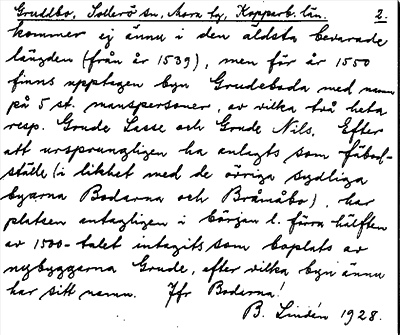 Gruddbo, Sollerö sn, Mora tg, Kopparb. län. 2.
kommer ej ännu i den äldsta bevarade
längden (från år 1539), men för år 1550
finns upptagen byn Grudeboda med namn
på 5 st. manspersoner, av vilka två heta
resp. Grude Lasse och Grude Nils. Efter
att ursprungligen ha anlagts som fäbod-
ställe (i likhet med de övriga sydliga
byarna Bodarna och Bränåbo), har
platsen antagligen i början l. förra hälften
av 1500-talet intagits som boplats av
nybyggarna Grude, efter vilka byn ännu
har sitt namn. Jfr Bodarna!
B. Lindén 1928.